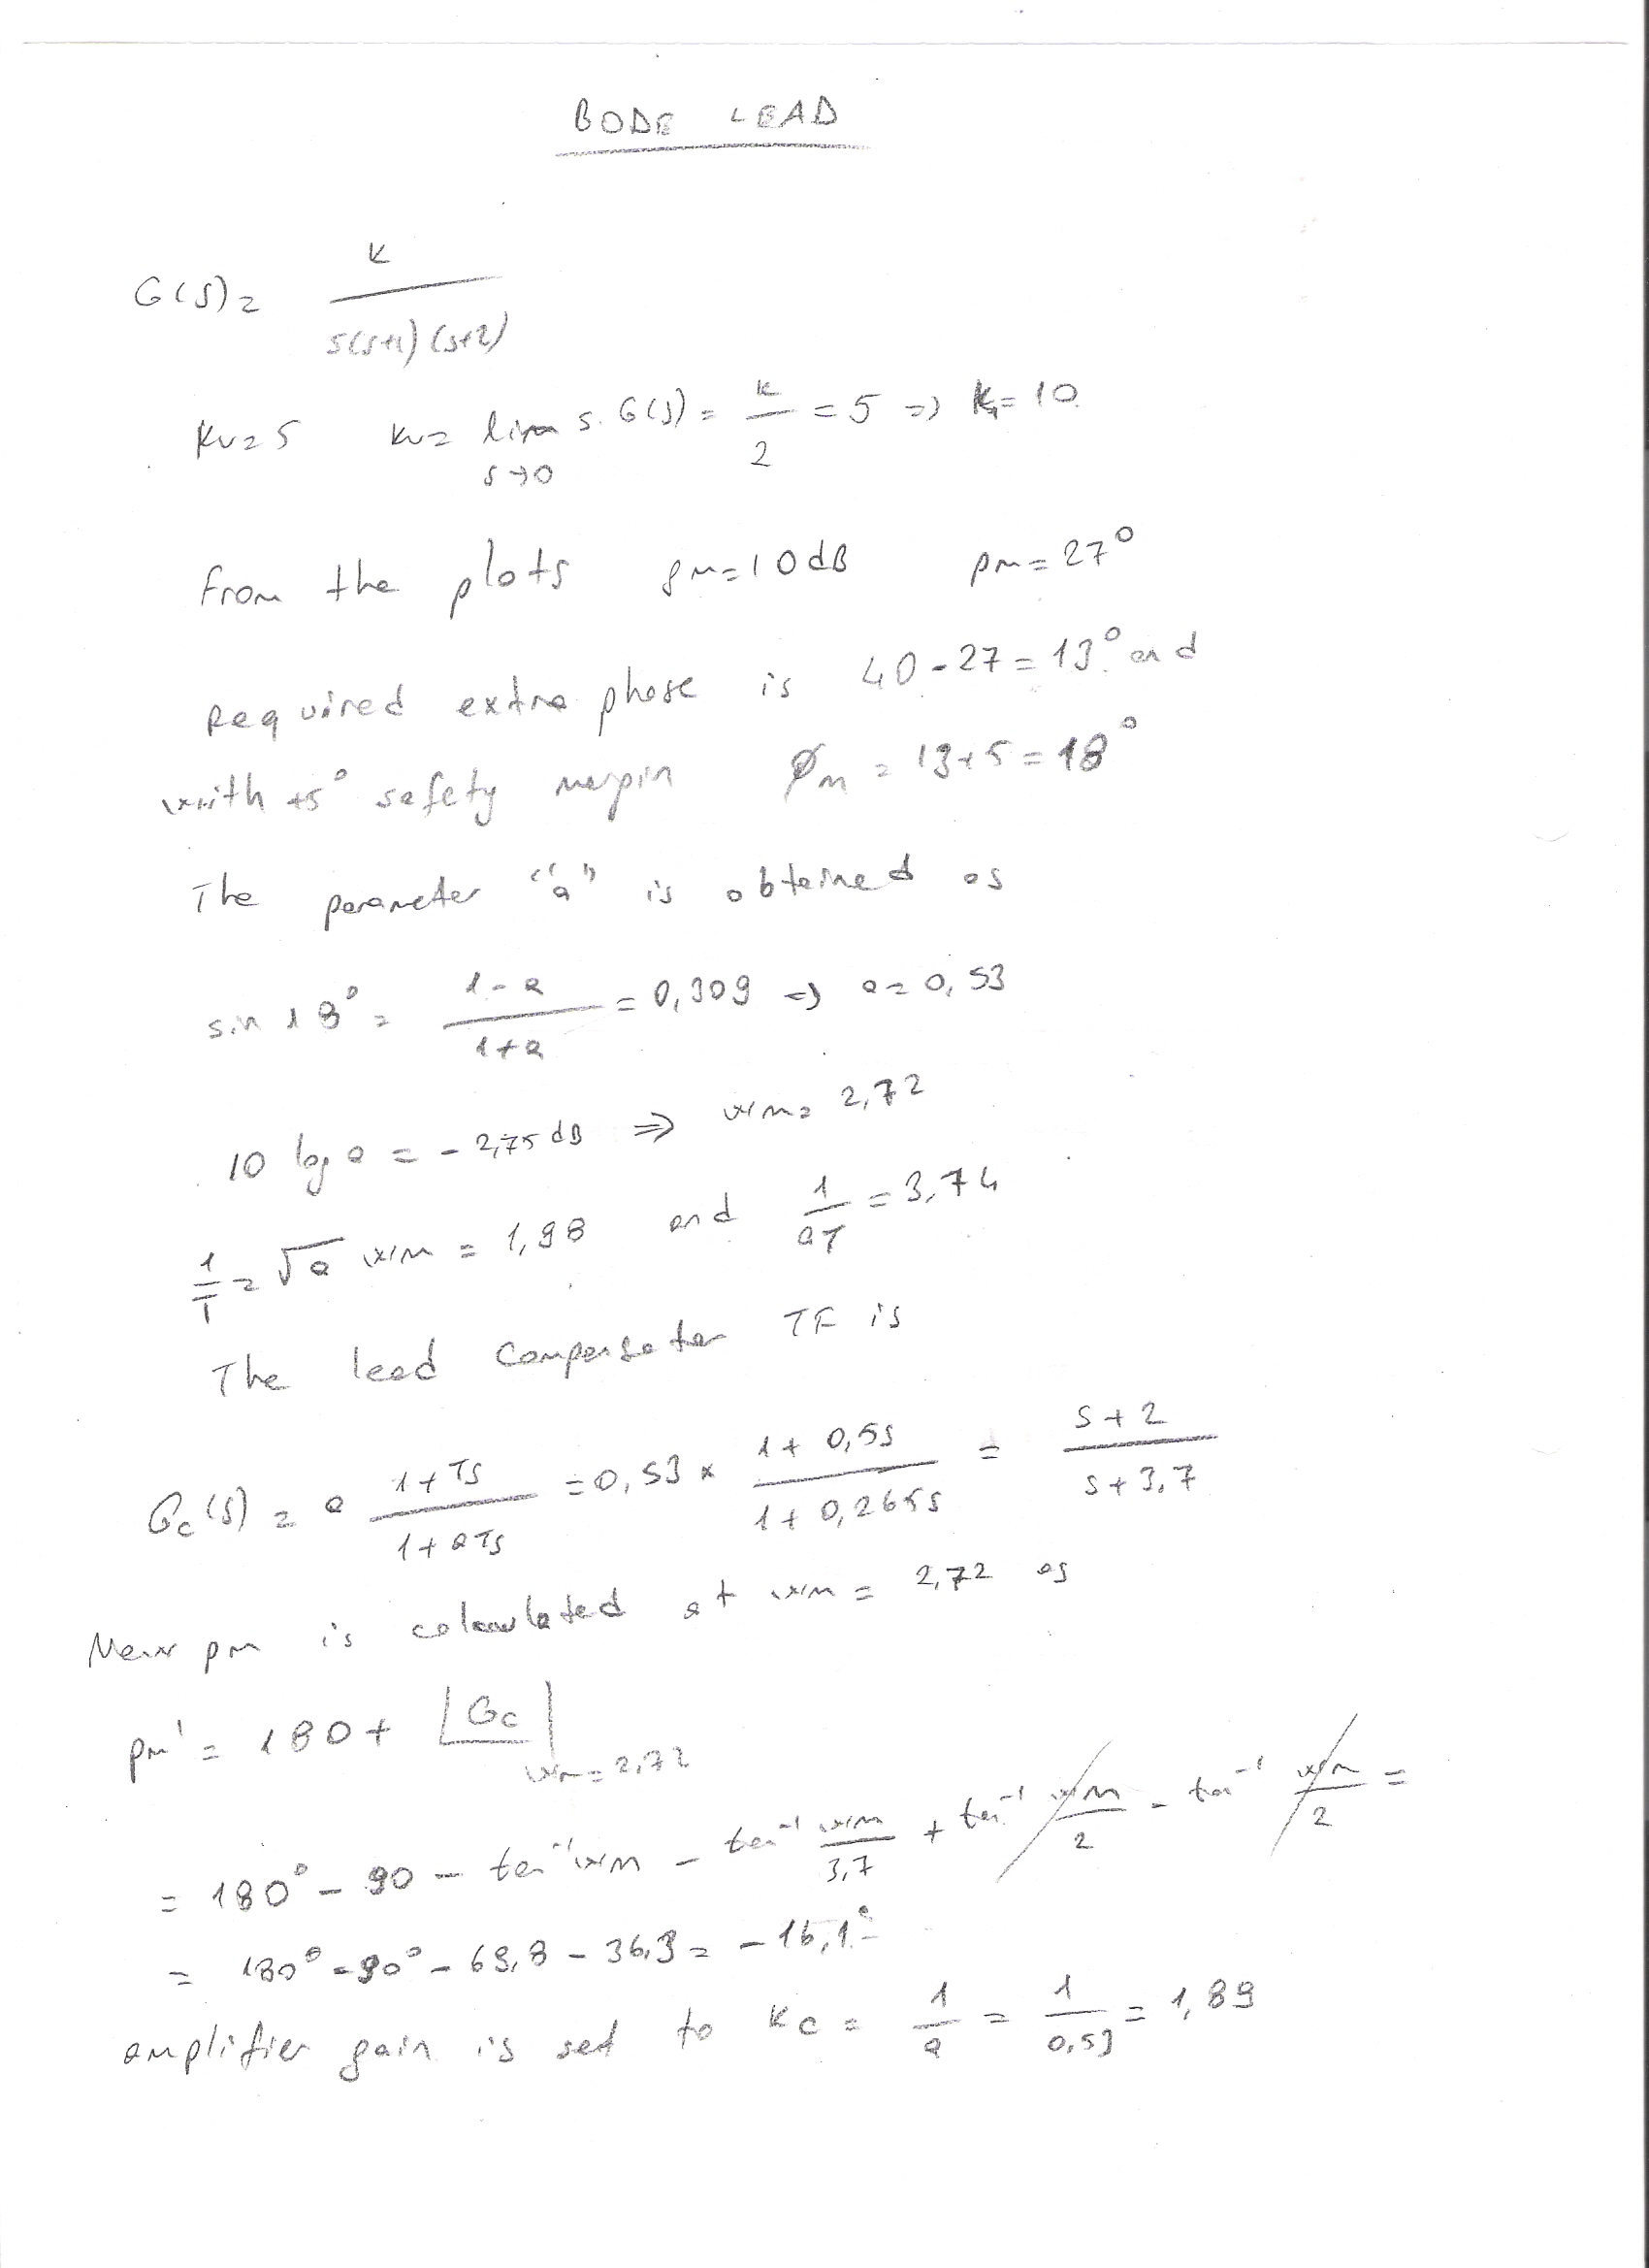 BODE LEAD
G(s)= K / s(s+1)(s+2)
Kv=5 Kv= lim s→0 s.G(s) = K/2 = 5 => K1=10
From the plots gm=10dB pm=27°
Required extra phase is 40-27=13° and
with +5° safety margin Øm = 13+5=18°
The parameter "a" is obtained as
sin 18° = (1-a)/(1+a) = 0,309 => a=0,53
10 log a = -2,75 dB => wm= 2,72
1/T = √a wm = 1,98 and 1/aT = 3,74
The lead compensator TF is
Gc(s) = a (1+Ts)/(1+aTs) = 0,53 x (1+0,5s)/(1+0,265s) = (s+2)/(s+3,7)
New pm is calculated at wm = 2,72 as
pm' = 180+ ∠Gc | wm=2,72
= 180° - 90 - tan⁻¹wm - tan⁻¹ wm/3,7 + tan⁻¹ wm/2 - tan⁻¹ wm/2 =
= 180° - 90° - 69,8 - 36,3 = -16,1°
amplifier gain is set to Kc = 1/a = 1/0,53 = 1,89